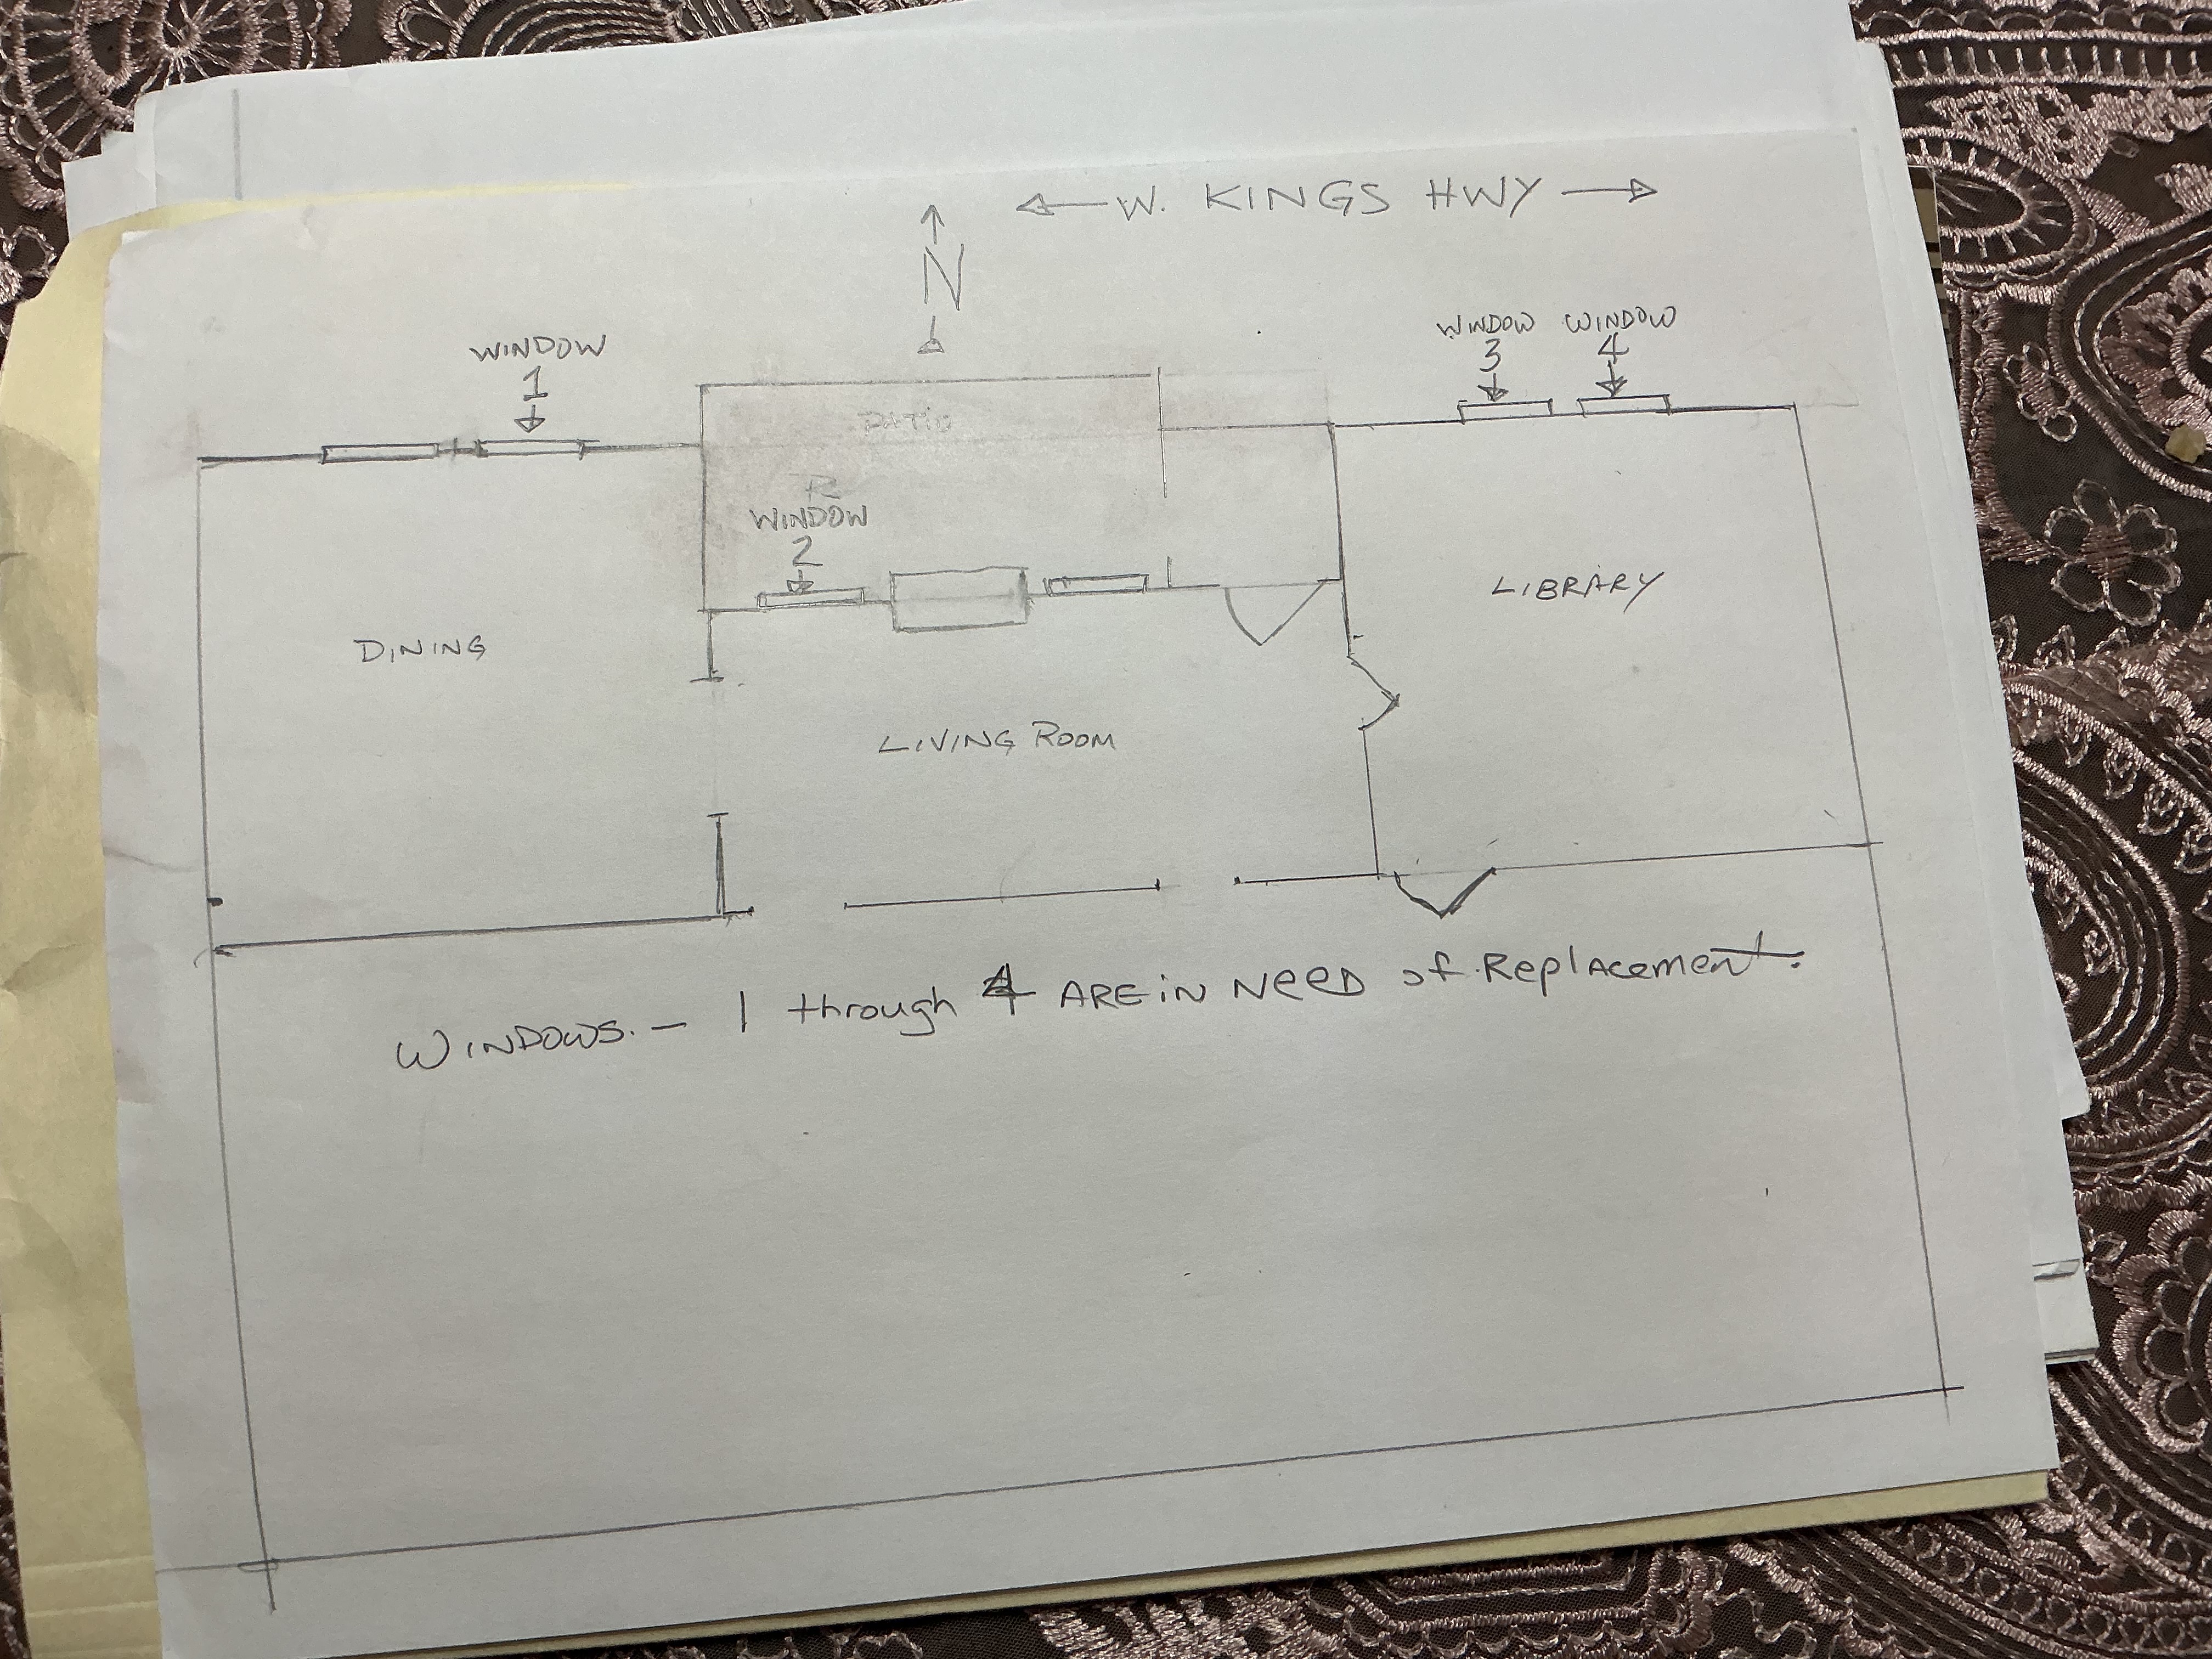 W. KINGS HWY
N
WINDOW
1
WINDOW WINDOW
3 4
PATIO
WINDOW
2
LIBRARY
DINING
LIVING ROOM
WINDOWS. — 1 through 4 ARE IN NEED of Replacement.